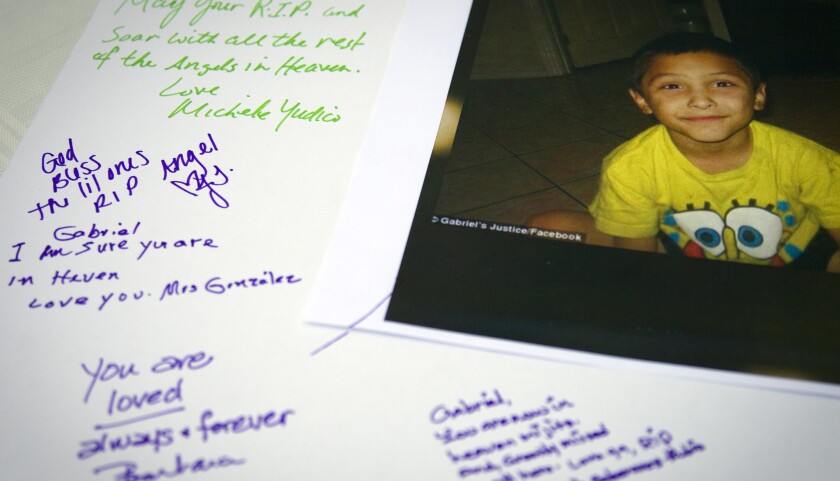 May your R.I.P. and
Soar with all the rest
of the Angels in Heaven.
Love
Michele Yudico
God
Bless
the lil ones
Angel
RIP
Gabriel
I am sure you are
in Heaven
Love you. Mrs González
You are
loved
always & forever
Barbara
Gabriel,
You are now in
heaven mijito.
and, greatly missed
RIP
© Gabriel's Justice/Facebook